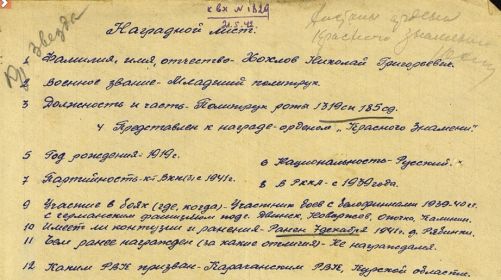 к вх № 1820
21.5.42
Кр Звезда
Достоин ордена
Красного Знамени
Наградной лист.
1 Фамилия, имя, отчество - Хохлов Николай Григорьевич.
2 Военное звание - Младший политрук
3 Должность и часть - Политрук роты 1319 сп 185 сд.
4 Представлен к награде - орденом "Красного Знамени"
5 Год рождения - 1919 г.
6 Национальность - Русский.
7 Партийность - к-т ВКП(б) с 1941 г.
8 в РККА - с 1939 года.
9 Участие в боях (где, когда) - Участник боев с белофиннами 1939-40 г.
с германским фашизмом под г. Двинск, Опочка, Калинин.
10 Имеет ли контузии и ранения - Ранен 7 декабря 1941 г. д. Рябинки.
11 Чем ранее награжден (за какие отличия) - Не награждался.
12 Каким РВК призван - РВК, Курской области.